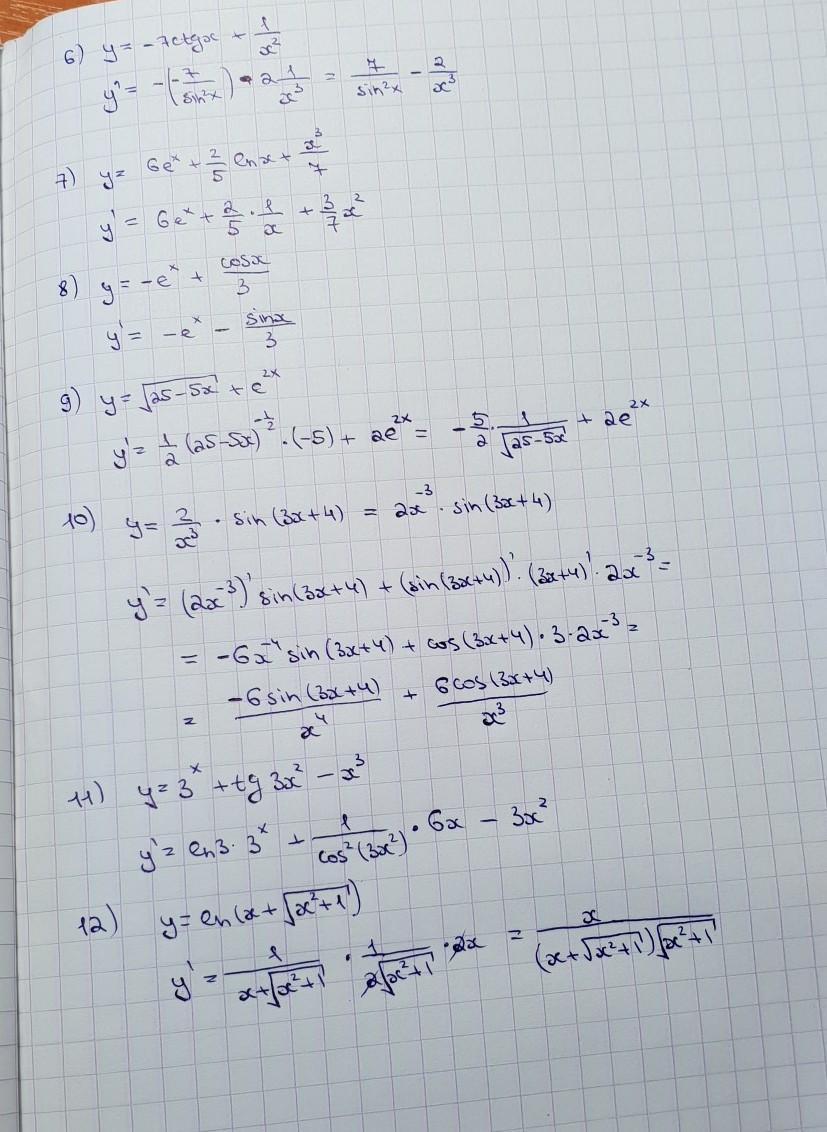 6) y = -7ctgx + 1/x²
y' = -(-7/sin²x) - 2 1/x³ = 7/sin²x - 2/x³
7) y = 6eˣ + 2/5 lnx + x³/7
y' = 6eˣ + 2/5 · 1/x + 3/7 x²
8) y = -eˣ + cosx/3
y' = -eˣ - sinx/3
9) y = √(25-5x) + e^(2x)
y' = 1/2 (25-5x)^(-1/2) · (-5) + 2e^(2x) = -5/2 · 1/√(25-5x) + 2e^(2x)
10) y = 2/x³ · sin(3x+4) = 2x⁻³ · sin(3x+4)
y' = (2x⁻³)' sin(3x+4) + (sin(3x+4))' · (3x+4)' · 2x⁻³ =
= -6x⁻⁴ sin(3x+4) + cos(3x+4) · 3 · 2x⁻³ =
= -6sin(3x+4)/x⁴ + 6cos(3x+4)/x³
11) y = 3ˣ + tg 3x² - x³
y' = ln3 · 3ˣ + 1/cos²(3x²) · 6x - 3x²
12) y = ln(x + √(x²+1))
y' = 1/(x+√(x²+1)) · 1/(2√(x²+1)) · 2x = x/((x+√(x²+1))√(x²+1))